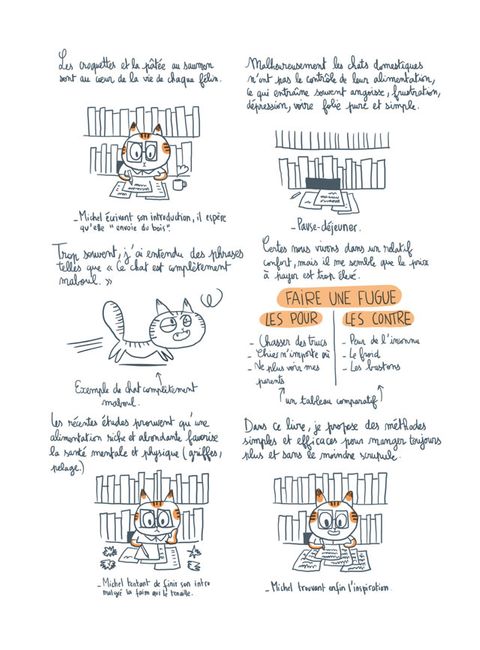 Les croquettes et la pâtée au saumon
sont au cœur de la vie de chaque félin.
_ Michel écrivant son introduction, il espère
qu'elle "envoie du bois".
Malheureusement les chats domestiques
n'ont pas le contrôle de leur alimentation,
ce qui entraîne souvent angoisse, frustration,
dépression, voire folie pure et simple.
_ Pause-déjeuner.
Trop souvent, j'ai entendu des phrases
telles que « Ce chat est complètement
maboul. »
Exemple de chat complètement
maboul.
Certes nous vivons dans un relatif
confort, mais il me semble que le prix
à payer est trop élevé.
FAIRE UNE FUGUE
LES POUR
LES CONTRE
- Chasser des trucs
- Chier n'importe où
- Ne plus voir mes
parents
- Peur de l'inconnu
- Le froid
- Les bastons
un tableau comparatif
Les récentes études prouvent qu'une
alimentation riche et abondante favorise
la santé mentale et physique (griffes,
pelage.)
_ Michel tentant de finir son intro
malgré la faim qui le tenaille.
Dans ce livre, je propose des méthodes
simples et efficaces pour manger toujours
plus et sans le moindre scrupule.
_ Michel trouvant enfin l'inspiration.